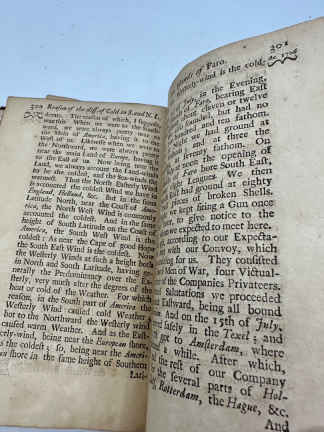 300 Reason of the diff. of Cold in S. and N. L.
donia. The reason of which, I su
was this. When we were to the South
ward, we were always pretty near
the Main of America, having it to the
West of us. Likewise when we were to
the Northward, we were always pretty
near the main Land of Europe, having it
to the East of us. Now being near the
Land, we always account the Land-wind
to be the coldest, and the Sea-winds the
warmest. That the North Easterly Wind
is accounted the coldest Wind in
England, Holland, &c. But in the same
Latitude North, near the Coast of Ame-
rica, the North West Wind is commonly
accounted the coldest. And in the same
height of South Latitude on the Coast of
America, the South West Wind is the
coldest: As near the Cape of good Hope
the South East Wind is the coldest. Now
the Westerly Winds at such a height both
in North and South Latitude, having ge-
nerally the Predominancy over the Ea-
sterly, very much alter the degrees of the
heat or cold of the Weather. For which
reason, in the South near of America the
Westerly Wind caused cold Weather,
but to the Northward the Westerly wind
caused warm Weather. And as the East-
erly-wind, being near the European shore,
was the coldest; so, being near the Ameri-
can shore in the same height of Southern
Lati-
Islands of Faro.
301
An. 1706
Easterly-wind is the cold-
July, in the Evening,
Faro, bearing East
about eleven or twelve
sounded, but had no
hundred and ten fathom.
night and had ground at
and at three the
seventy fathom. On
saw the opening of
Faro bore South East,
Leagues. We then
had ground at eighty
pieces of broken Shells.
we kept firing a Gun once
to give notice to the
we expected to meet here.
according to our Expecta-
with our Convoy, which
waiting for us. They consisted
Men of War, four Victual-
the Companies Privateers.
Salutations we proceeded
Eastward, being all bound
And on the 15th of July,
safely in the Texel; and
got to Amsterdam, where
a while. After which,
the rest of our Company
the several parts of Hol-
Rotterdam, the Hague, &c.
And